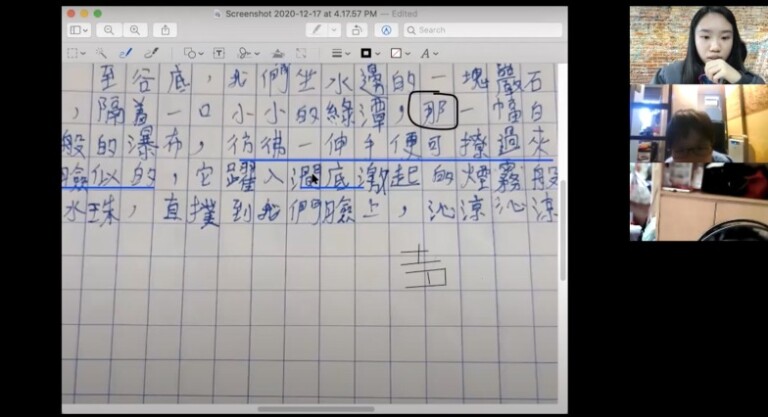 Screenshot 2020-12-17 at 4.17.57 PM — Edited
Search
至谷底，我們坐水邊的一塊巖石
，隔着一口小小的綠潭，那一幅白
般的瀑布，彷彿一伸手便可撩過來
臉似的，它躍入潭底激起的煙霧般
水珠，直撲到我們臉上，沁涼沁涼